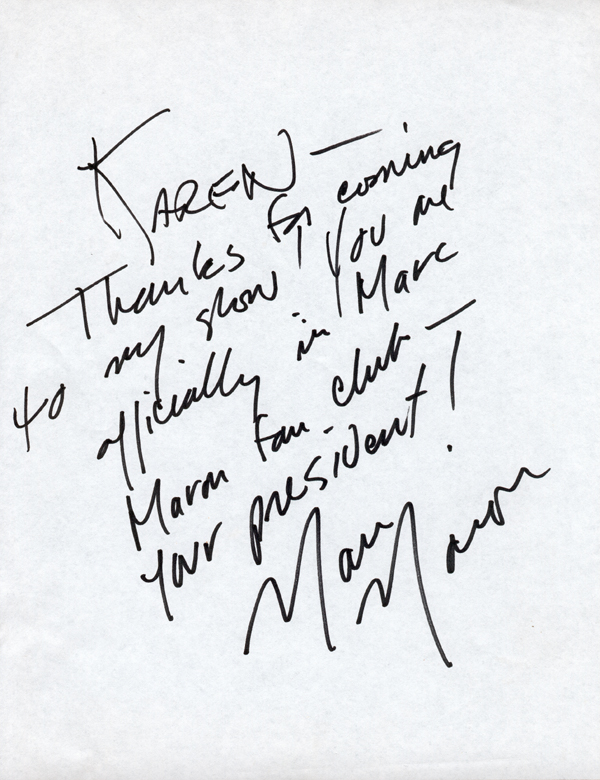 KAREN —
Thanks for coming
to my show! You are
officially in Marc
Maron Fan club —
Your president!
Marc Maron